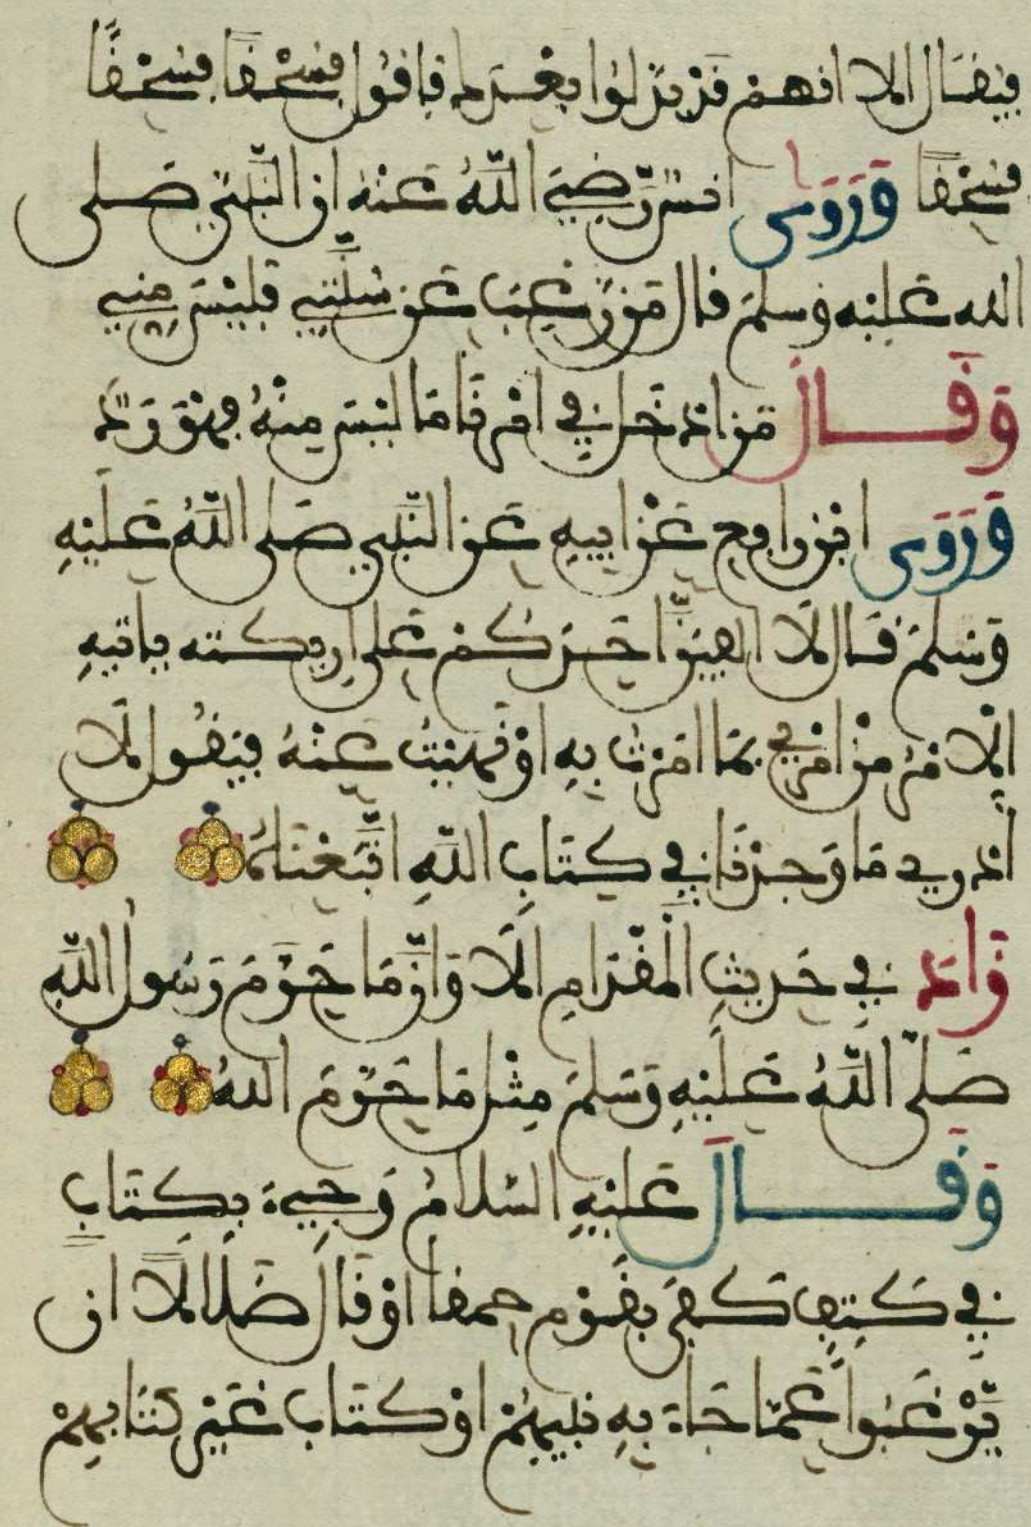 فيقال الا انهم قد بدلوا بعدك فاقول فسحقا فسحقا
فسحقا وروى انس رضي الله عنه ان النبي صلى
الله عليه وسلم قال من رغب عن سنتي فليس مني
وقال من ادخل في امرنا ما ليس منه فهو رد
وروى ابن رافع عن ابيه عن النبي صلى الله عليه
وسلم قال لا الفين احدكم على اريكته ياتيه
الامر من امري مما امرت به او نهيت عنه فيقول لا
ادري ما وجدنا في كتاب الله اتبعناه
زاد في حديث المقدام الا وان ما حرم رسول الله
صلى الله عليه وسلم مثل ما حرم الله
وقال عليه السلام وجيء بكتاب
في كتف كفى بقوم حمقا او قال ضلالا ان
يرغبوا عما جاء به نبيهم او كتاب غير كتابهم